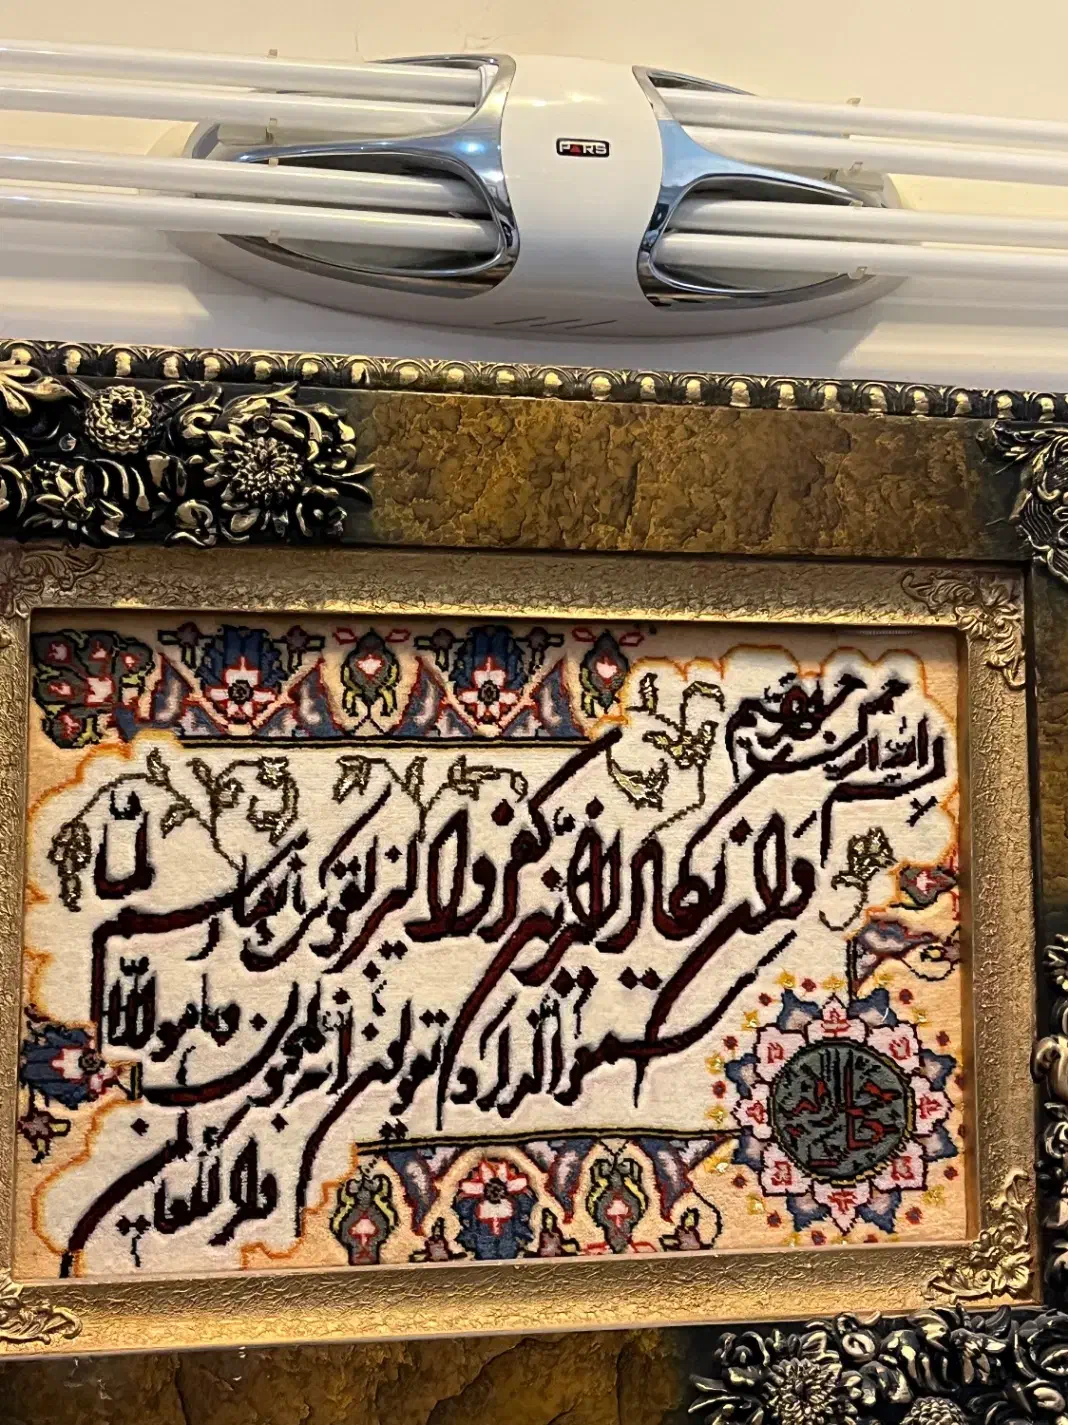 PARS
بسم الله الرحمن الرحیم
وان یکاد الذین کفروا لیزلقونک بابصارهم لما
سمعوا الذکر و یقولون انه لمجنون و ما هو الا
ذکر للعالمین